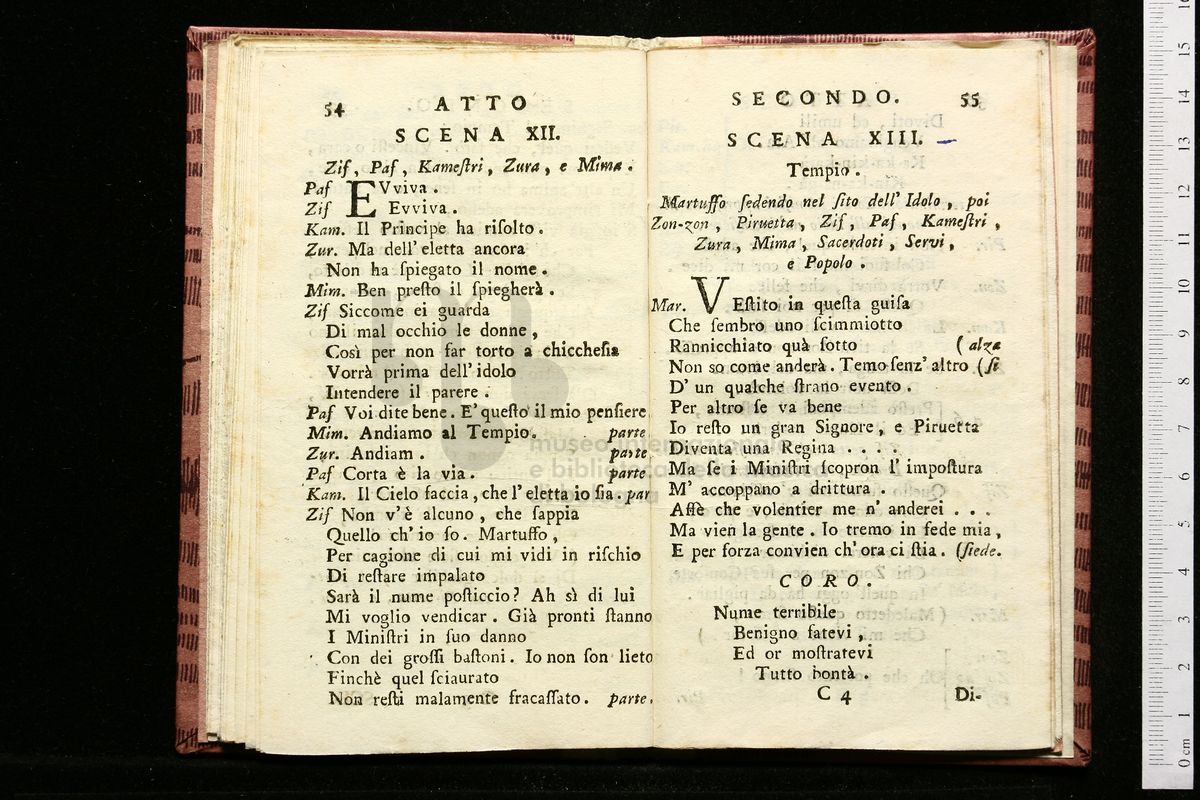 54 ATTO
SCENA XII.
Zif, Paf, Kameſtri, Zura, e Mima.
Paf EVviva.
Zif Evviva.
Kam. Il Principe ha riſolto.
Zur. Ma dell' eletta ancora
Non ha ſpiegato il nome.
Mim. Ben preſto il ſpiegherà.
Zif Siccome ei guarda
Di mal occhio le donne,
Così per non far torto a chiccheſia
Vorrà prima dell' idolo
Intendere il parere.
Paf Voi dite bene. E' queſto il mio penſiere
Mim. Andiamo al Tempio. parte
Zur. Andiam. parte
Paf Corta è la via. parte
Kam. Il Cielo faccia, che l' eletta io ſia. par
Zif Non v' è alcuno, che ſappia
Quello ch' io ſo. Martuffo,
Per cagione di cui mi vidi in riſchio
Di reſtare impalato
Sarà il nume poſticcio? Ah sì di lui
Mi voglio vendicar. Già pronti ſtanno
I Miniſtri in ſuo danno
Con dei groſſi baſtoni. Io non ſon lieto
Finchè quel ſciaurato
Non reſti malamente fracaſſato. parte.
SECONDO. 55
SCENA XIII.
Tempio.
Martuffo ſedendo nel ſito dell' Idolo, poi
Zon-zon, Piruetta, Zif, Paf, Kameſtri,
Zura, Mima, Sacerdoti, Servi,
e Popolo.
Mar. VEſtito in queſta guiſa
Che ſembro uno ſcimmiotto
Rannicchiato quà ſotto (alza
Non so come anderà. Temo ſenz' altro (ſi
D' un qualche ſtrano evento.
Per altro ſe va bene
Io reſto un gran Signore, e Piruetta
Diventa una Regina . . . .
Ma ſe i Miniſtri ſcopron l' impoſtura
M' accoppano a drittura.
Affè che volentier me n' anderei . . .
Ma vien la gente. Io tremo in fede mia,
E per forza convien ch' ora ci ſtia. (ſiede.
CORO.
Nume terribile
Benigno fatevi,
Ed or moſtratevi
Tutto bontà.
C 4 Di-
museo internazionale
e biblioteca della musica
di bologna
0 cm 1 2 3 4 5 6 7 8 9 10 11 12 13 14 15 16